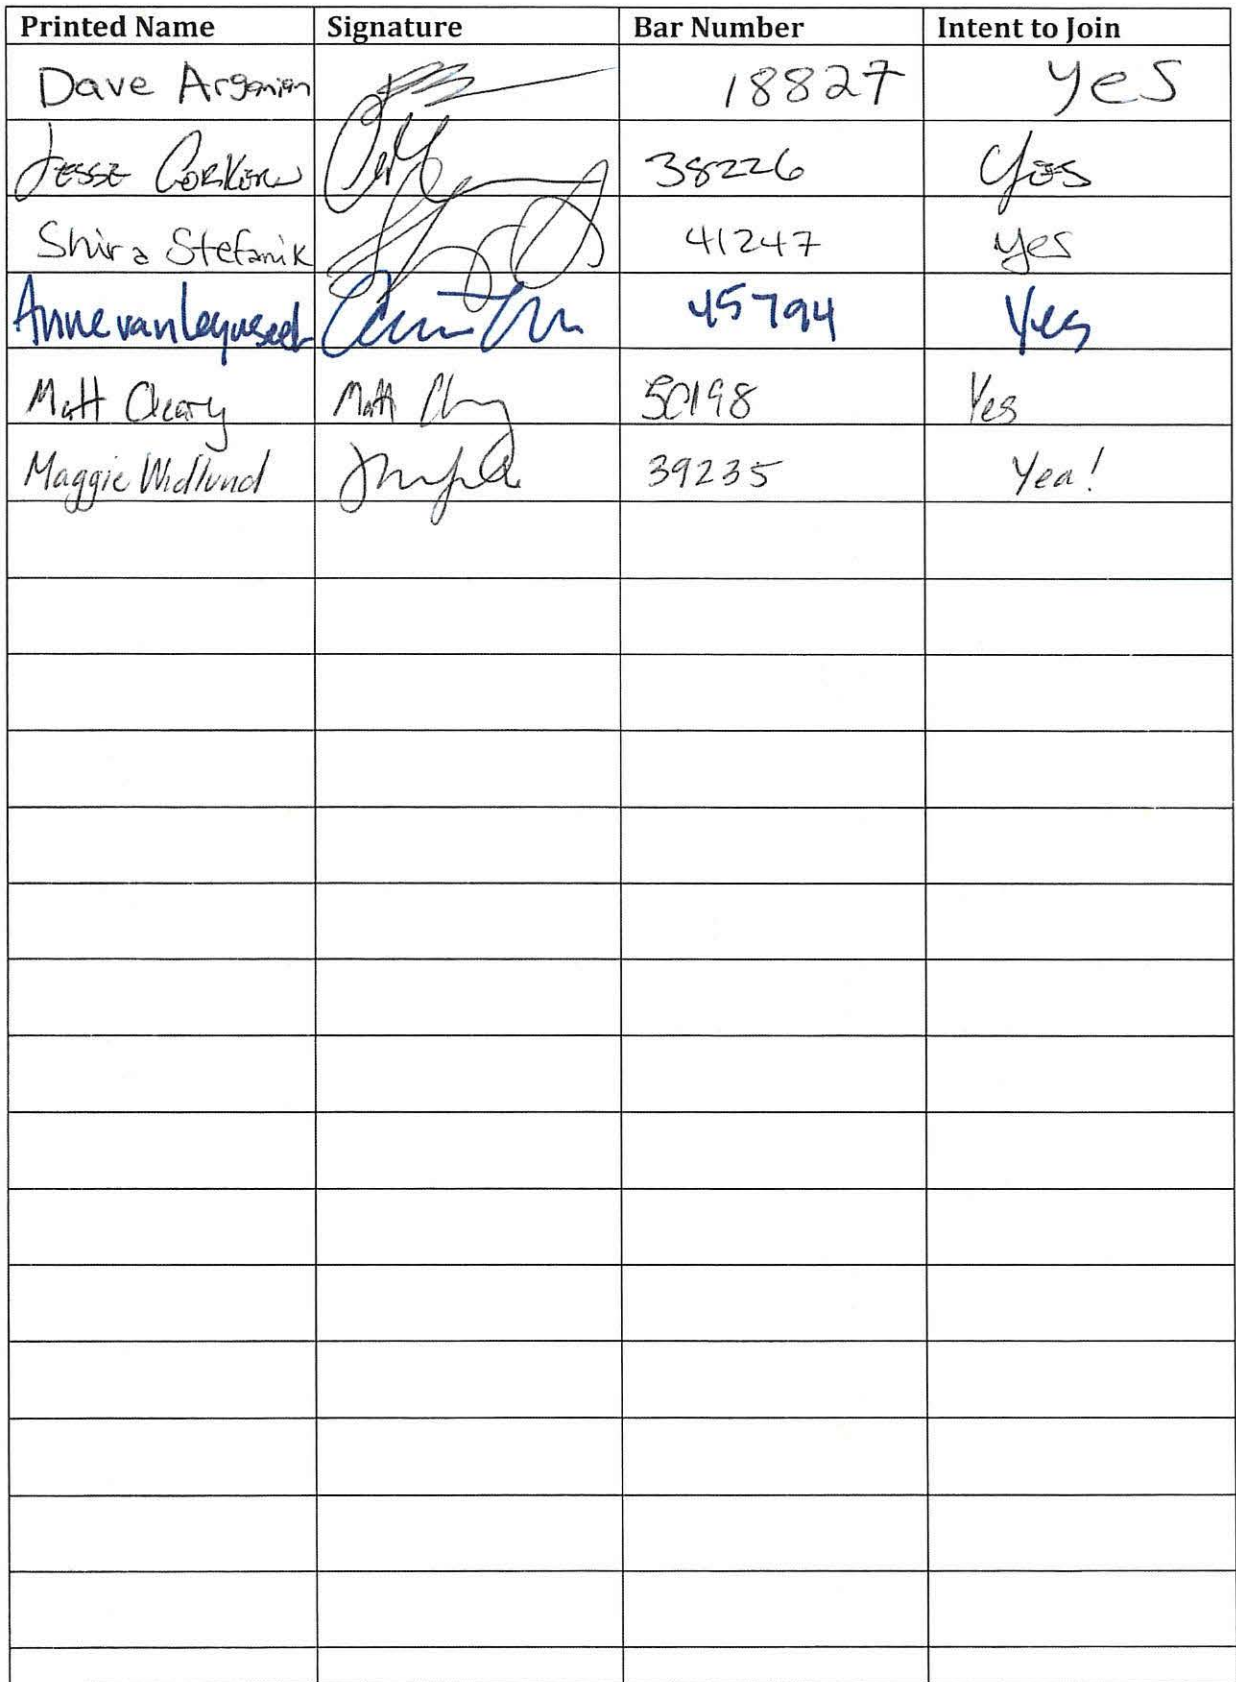 Printed Name Signature Bar Number Intent to Join
Dave Arganian 18827 yes
Jesse Corkern 38226 Yes
Shira Stefanik 41247 yes
Anne van 45794 Yes
Matt Cleary Matt 50198 Yes
Maggie Widlund 39235 Yea!